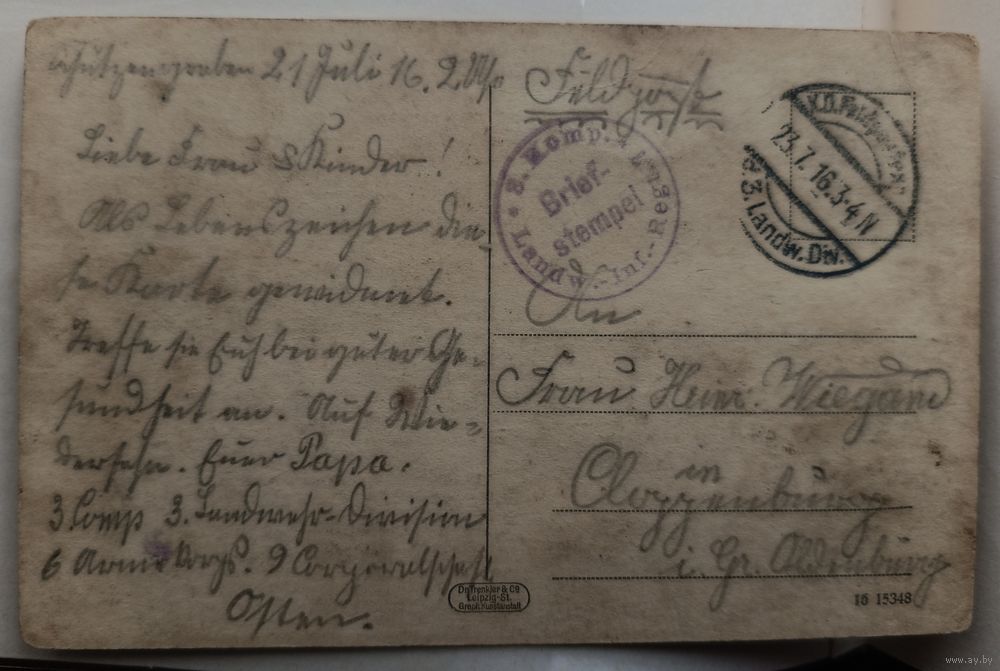 Schützengraben 21 Juli 16. 2 Uhr
Liebe Frau & Kinder!
Als Lebenszeichen die
se Karte gewidmet.
Treffe sie Euch bei guter Ge-
sundheit an. Auf Wie-
dersehn. Euer Papa.
3. Comp 3. Landwehr-Division
6 Armee Korps. 9 Corporalschaft
Osten.
Feldpost
8. Komp.
Brief-
stempel
Landw.-Inf.-Reg.
K.D. Feldpostexp.
23.7.16.3-4 N
3. Landw. Div.
An
Frau Heinr. Wiegand
in
Cloppenburg
i. Gr. Oldenburg
Dr. Trenkler & Co
Leipzig-St.
Graph. Kunstanstalt
16 15348
www.ay.by